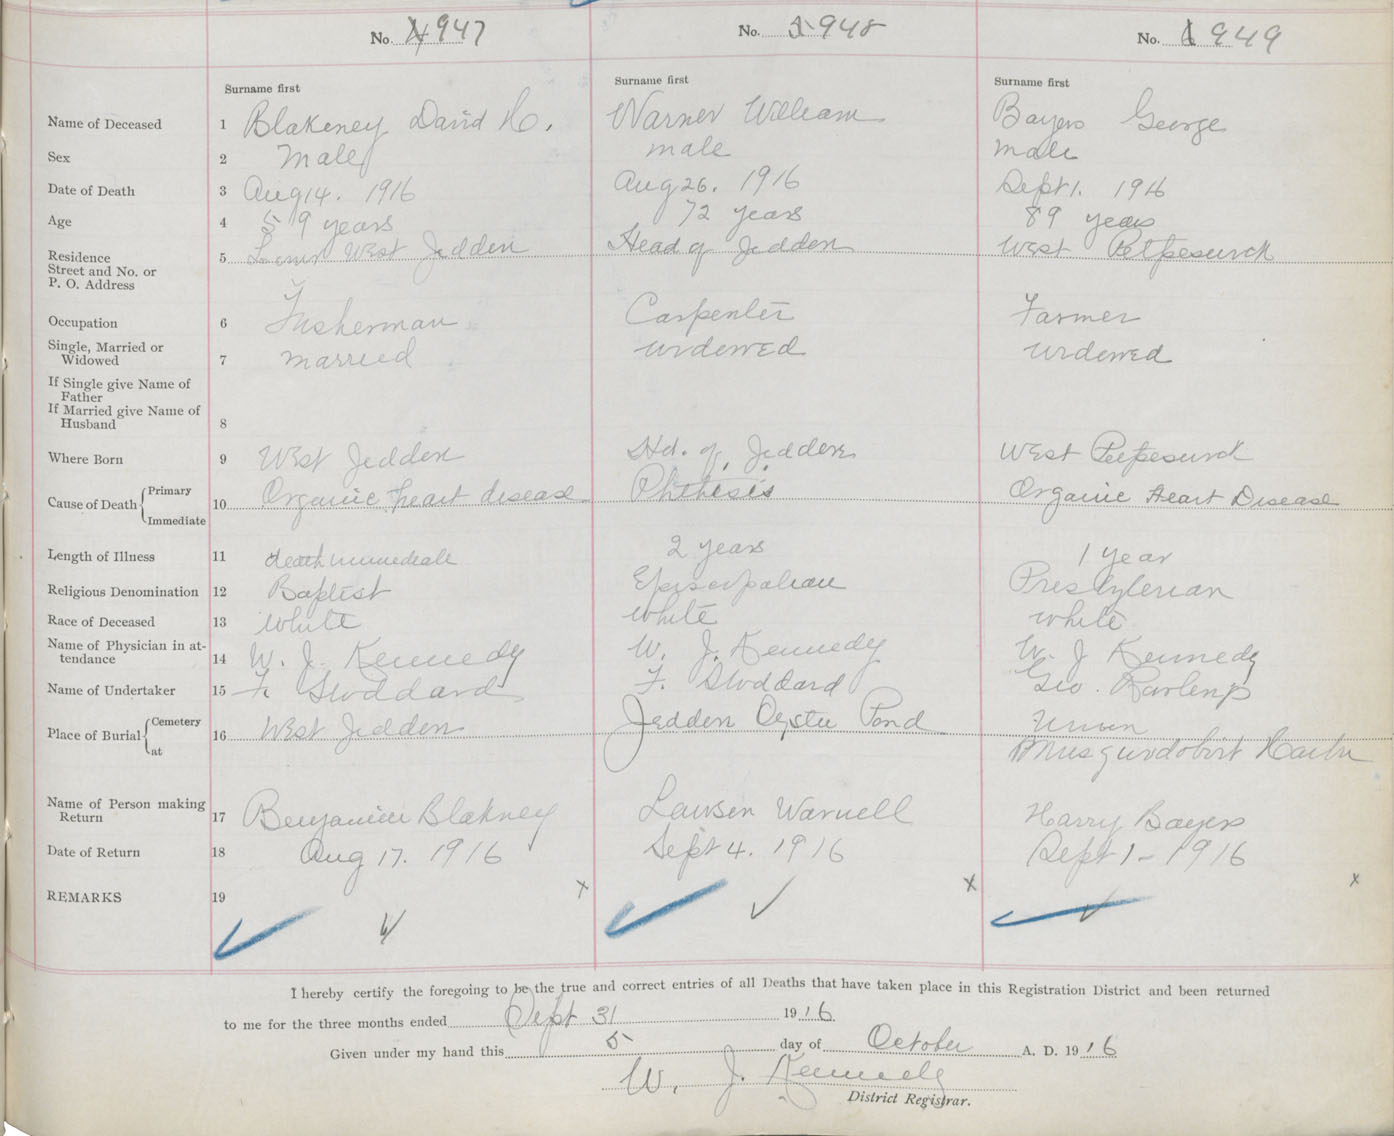 No. 4 947 No. 5 948 No. 6 949
Surname first Surname first Surname first
Name of Deceased 1 Blakeney David H. Warner William Bayers George
Sex 2 Male male male
Date of Death 3 Aug 14. 1916 Aug 26. 1916 Sept 1. 1916
Age 4 59 years 72 years 89 years
Residence
Street and No. or
P. O. Address 5 West Jeddore Head of Jeddore West Petpeswick
Occupation 6 Fisherman Carpenter Farmer
Single, Married or
Widowed 7 married widowed widowed
If Single give Name of
Father
If Married give Name of
Husband 8
Where Born 9 West Jeddore Hd. of Jeddore West Petpeswick
Cause of Death Primary
Immediate 10 Organic heart disease Phthesis Organic Heart Disease
Length of Illness 11 death immediate 2 years 1 year
Religious Denomination 12 Baptist Episcopalian Presbyterian
Race of Deceased 13 White White white
Name of Physician in at-
tendance 14 W. J. Kennedy W. J. Kennedy W. J Kennedy
Name of Undertaker 15 F. Stoddard F. Stoddard Geo.
Place of Burial Cemetery
at 16 West Jeddore Jeddore Oyster Pond Union
Musquodoboit Harbr
Name of Person making
Return 17 Benjamin Blakney Lawson Warnell Harry Bayers
Date of Return 18 Aug 17. 1916 Sept 4. 1916 Sept 1 - 1916
REMARKS 19 x x x
I hereby certify the foregoing to be the true and correct entries of all Deaths that have taken place in this Registration District and been returned
to me for the three months ended Sept 31 1916.
Given under my hand this 5 day of October A. D. 1916
W. J. Kennedy
District Registrar.